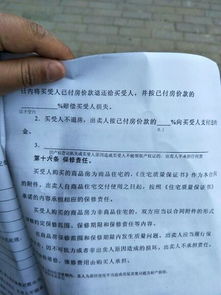 日内将买受人已付房价款退还给买受人，并按已付房价款的
%赔偿买受人损失。
2、买受人不退房，出卖人按已付房价款的 %向买受人支付违约
金。
3、
第十六条 保修责任。
买受人购买的商品房为商品住宅的，《住宅质量保证书》作为本合同
的附件。出卖人自商品住宅交付使用之日起，按照《住宅质量保证书》
承诺的内容承担相应的保修责任。
买受人购买的商品房为非商品住宅的，双方应当以合同附件的形式
保修范围、保修期限和保修责任等内容。
商品房保修范围和保修期限内发生质量问题，出卖人应当履行保
因不可抗力或者非出卖人原因造成的损坏，出卖人不承担责任，
维修，维修费用由购买人承担。